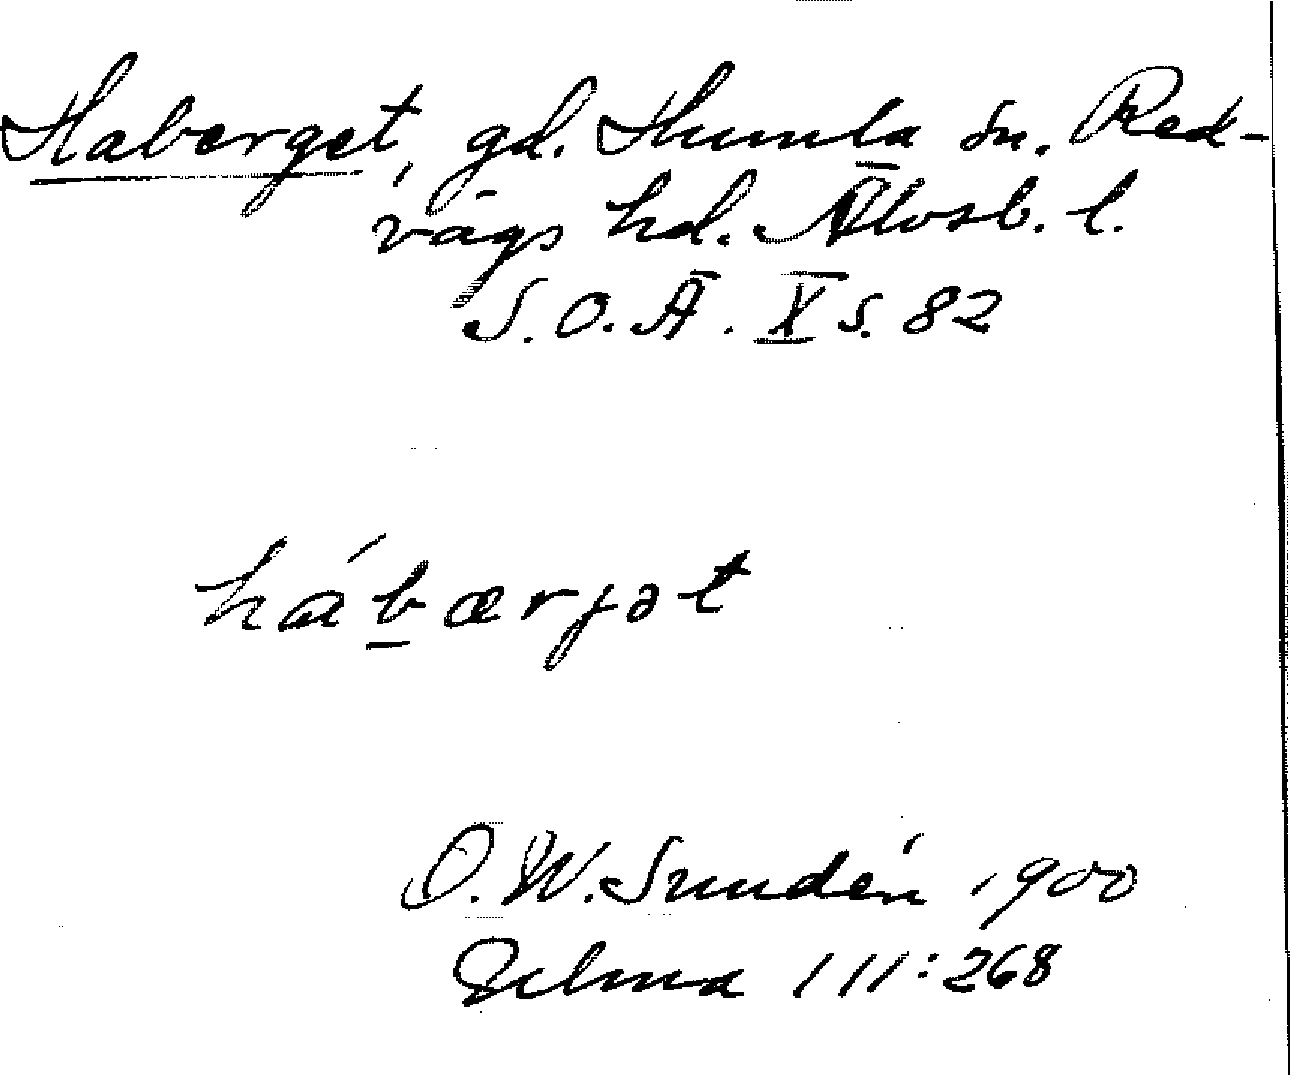 Haberget, gd. Humla sn. Red-
vägs hd. Älvsb. l.
S.O.Ä. X s. 82
hábærjət
D. W. Sundén 1900
111:268